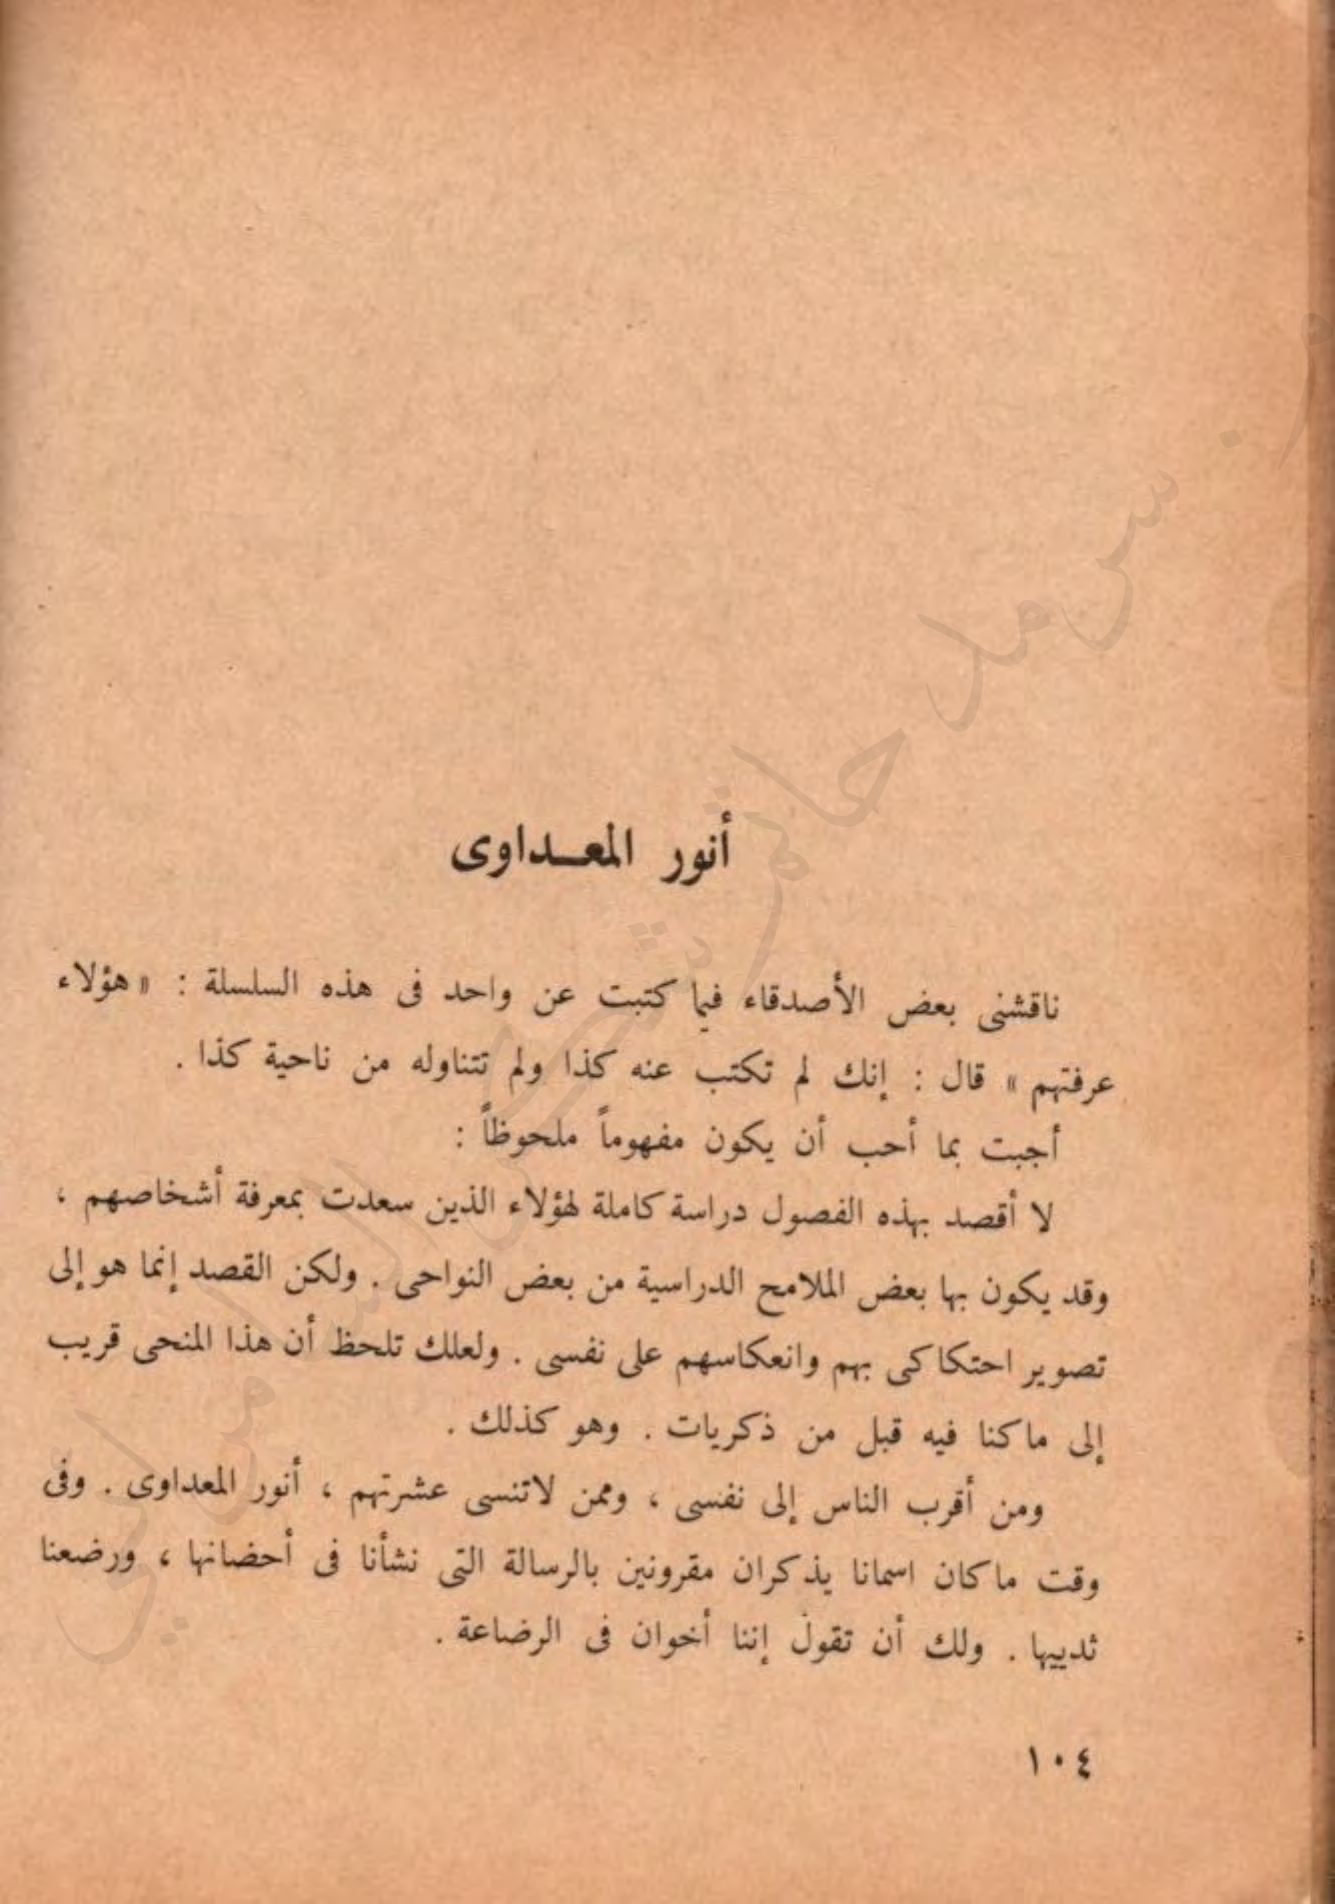 أنور المعـداوى
ناقشنى بعض الأصدقاء فيما كتبت عن واحد فى هذه السلسلة : « هؤلاء
عرفتهم » قال : إنك لم تكتب عنه كذا ولم تتناوله من ناحية كذا .
أجبت بما أحب أن يكون مفهوماً ملحوظاً :
لا أقصد بهذه الفصول دراسة كاملة لهؤلاء الذين سعدت بمعرفة أشخاصهم ،
وقد يكون بها بعض الملامح الدراسية من بعض النواحى . ولكن القصد إنما هو إلى
تصوير احتكاكى بهم وانعكاسهم على نفسى . ولعلك تلحظ أن هذا المنحى قريب
إلى ماكنا فيه قبل من ذكريات . وهو كذلك .
ومن أقرب الناس إلى نفسى ، وممن لاتنسى عشرتهم ، أنور المعداوى . وفى
وقت ماكان اسمانا يذكران مقرونين بالرسالة التى نشأنا فى أحضانها ، ورضعنا
ثدييها . ولك أن تقول إننا أخوان فى الرضاعة .
١٠٤